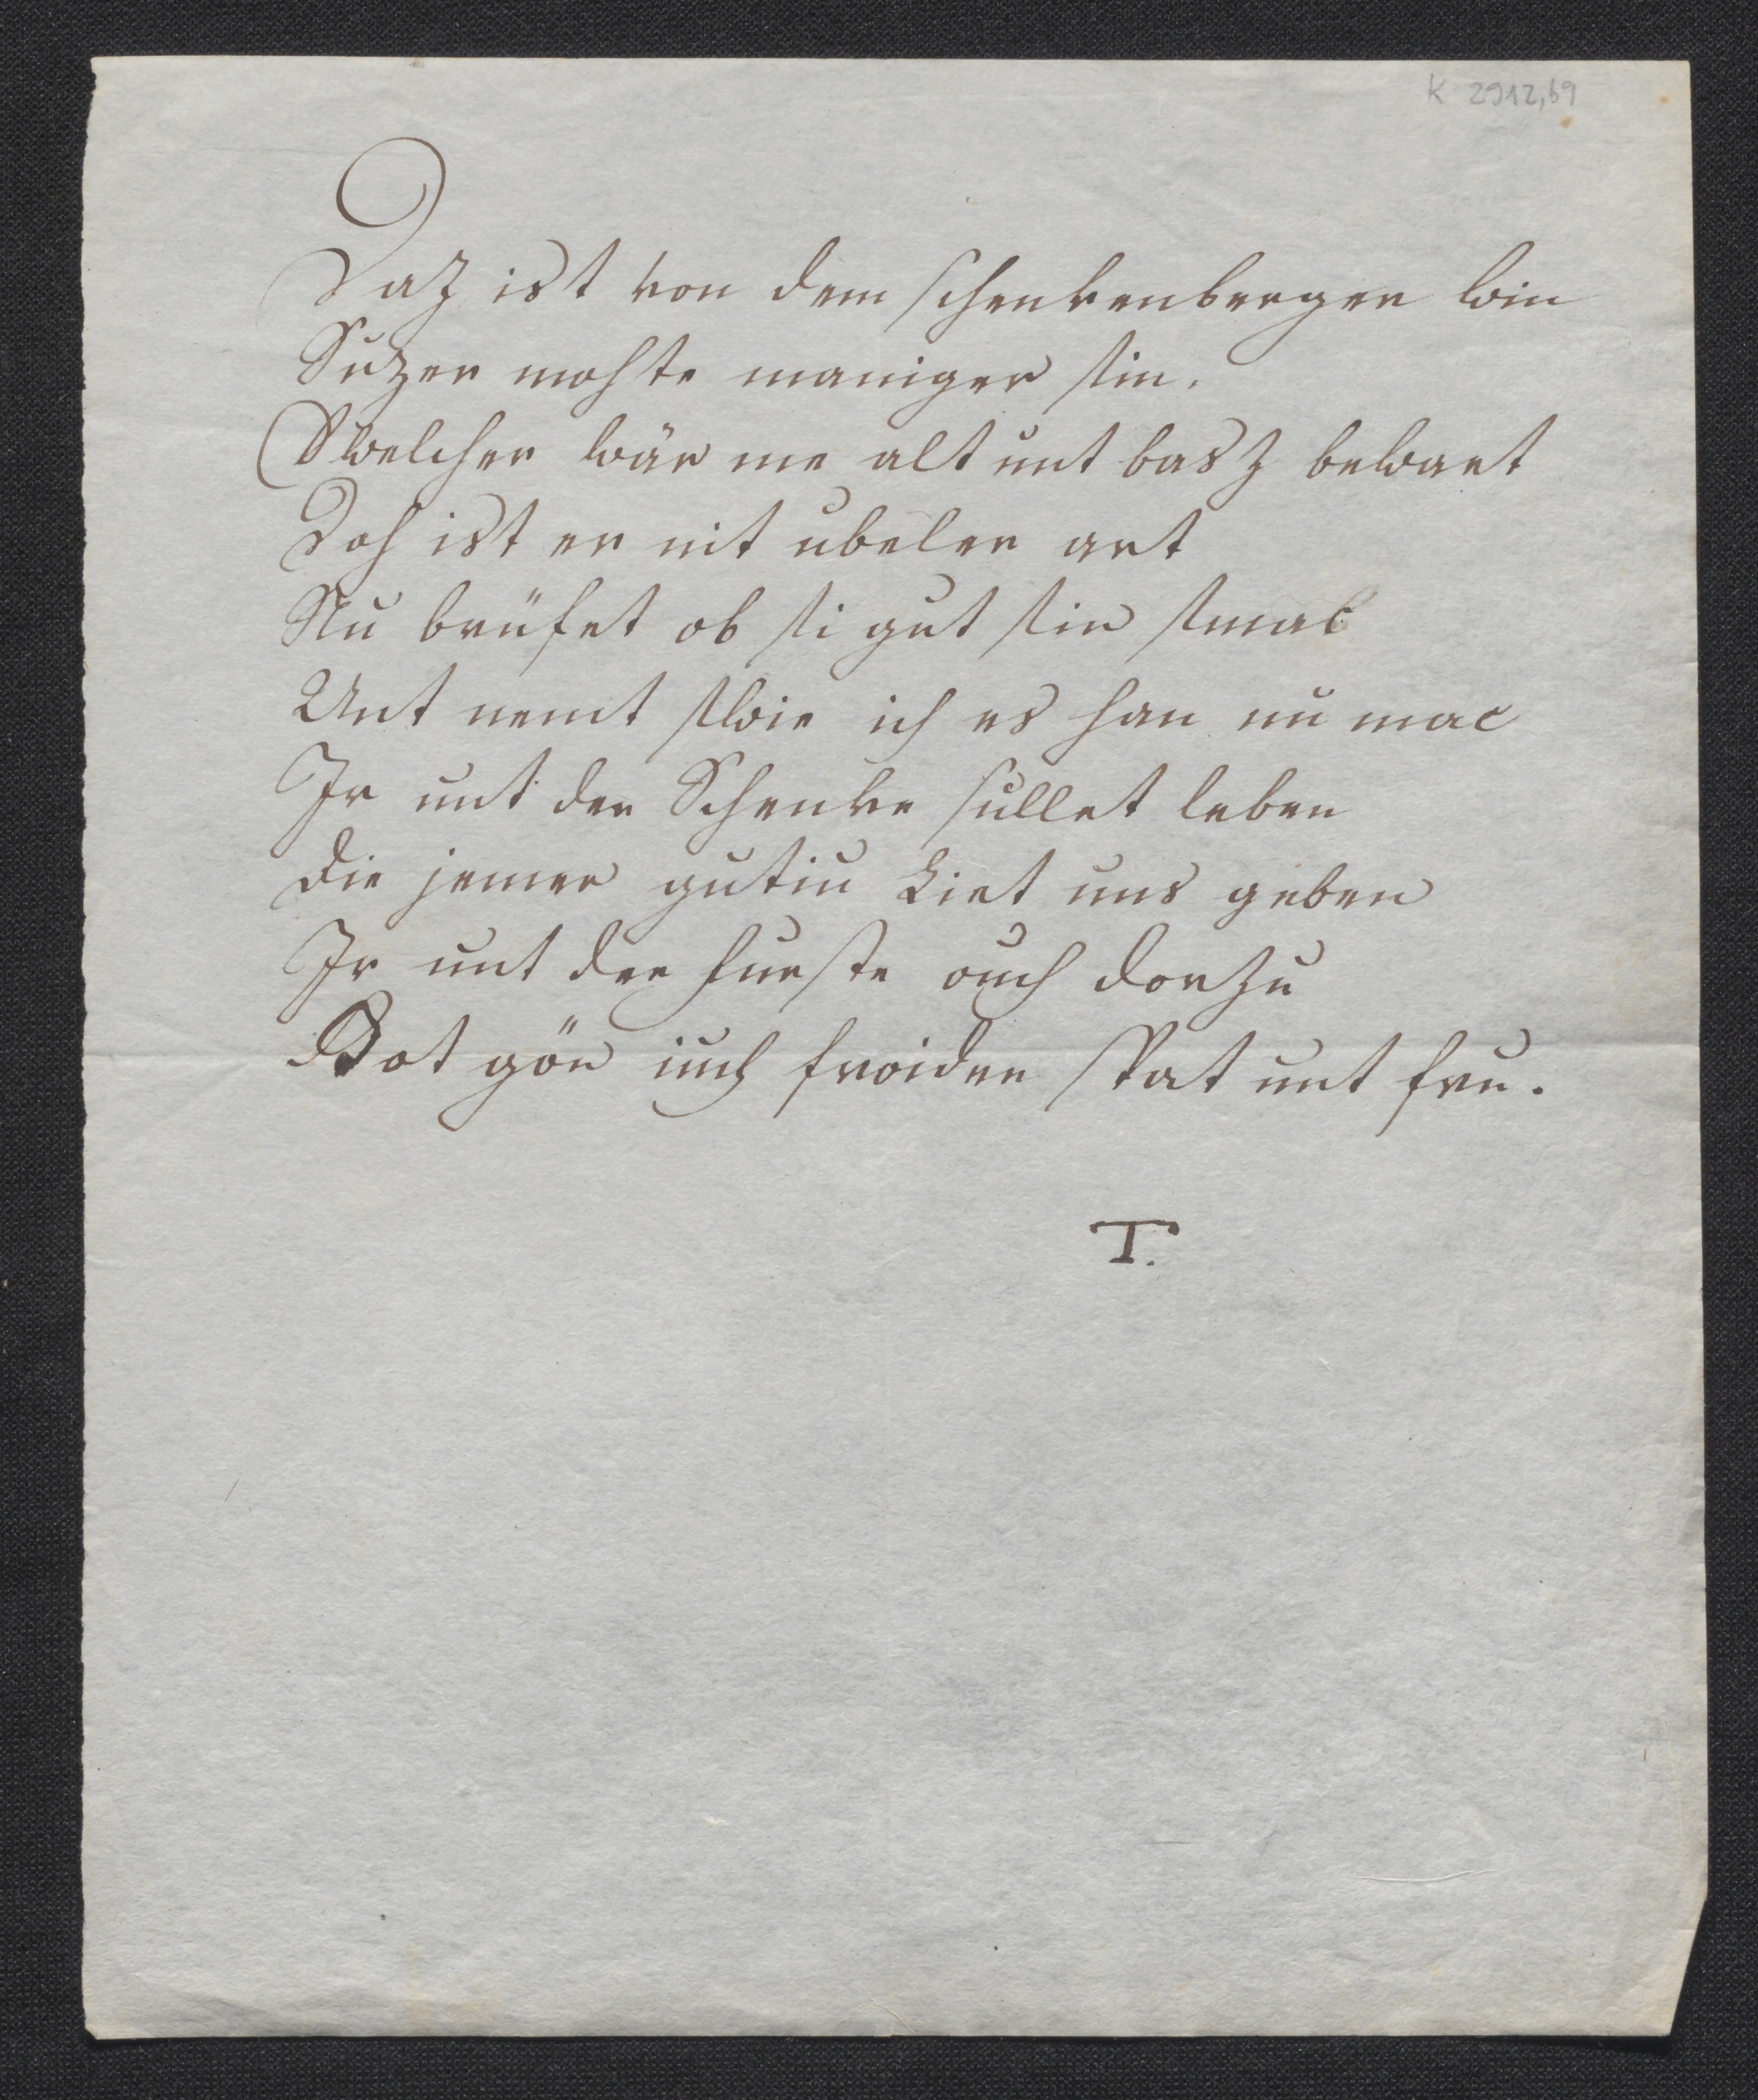 K 2912,69
Daz ist von dem schenkenberger win
Suzer mohte maniger sin.
Swelcher wär me alt unt basz bewart
Doh ist er nit ubeler art
Nu brüfet ob si gut sin smac
Unt nemt swie ich es han nu mac
Ir unt der Schenke sullet leben
die jemer gutiu Liet uns geben
Ir unt der furste ouch dorzu
Got gön iuch froiden spat unt fru.
T.